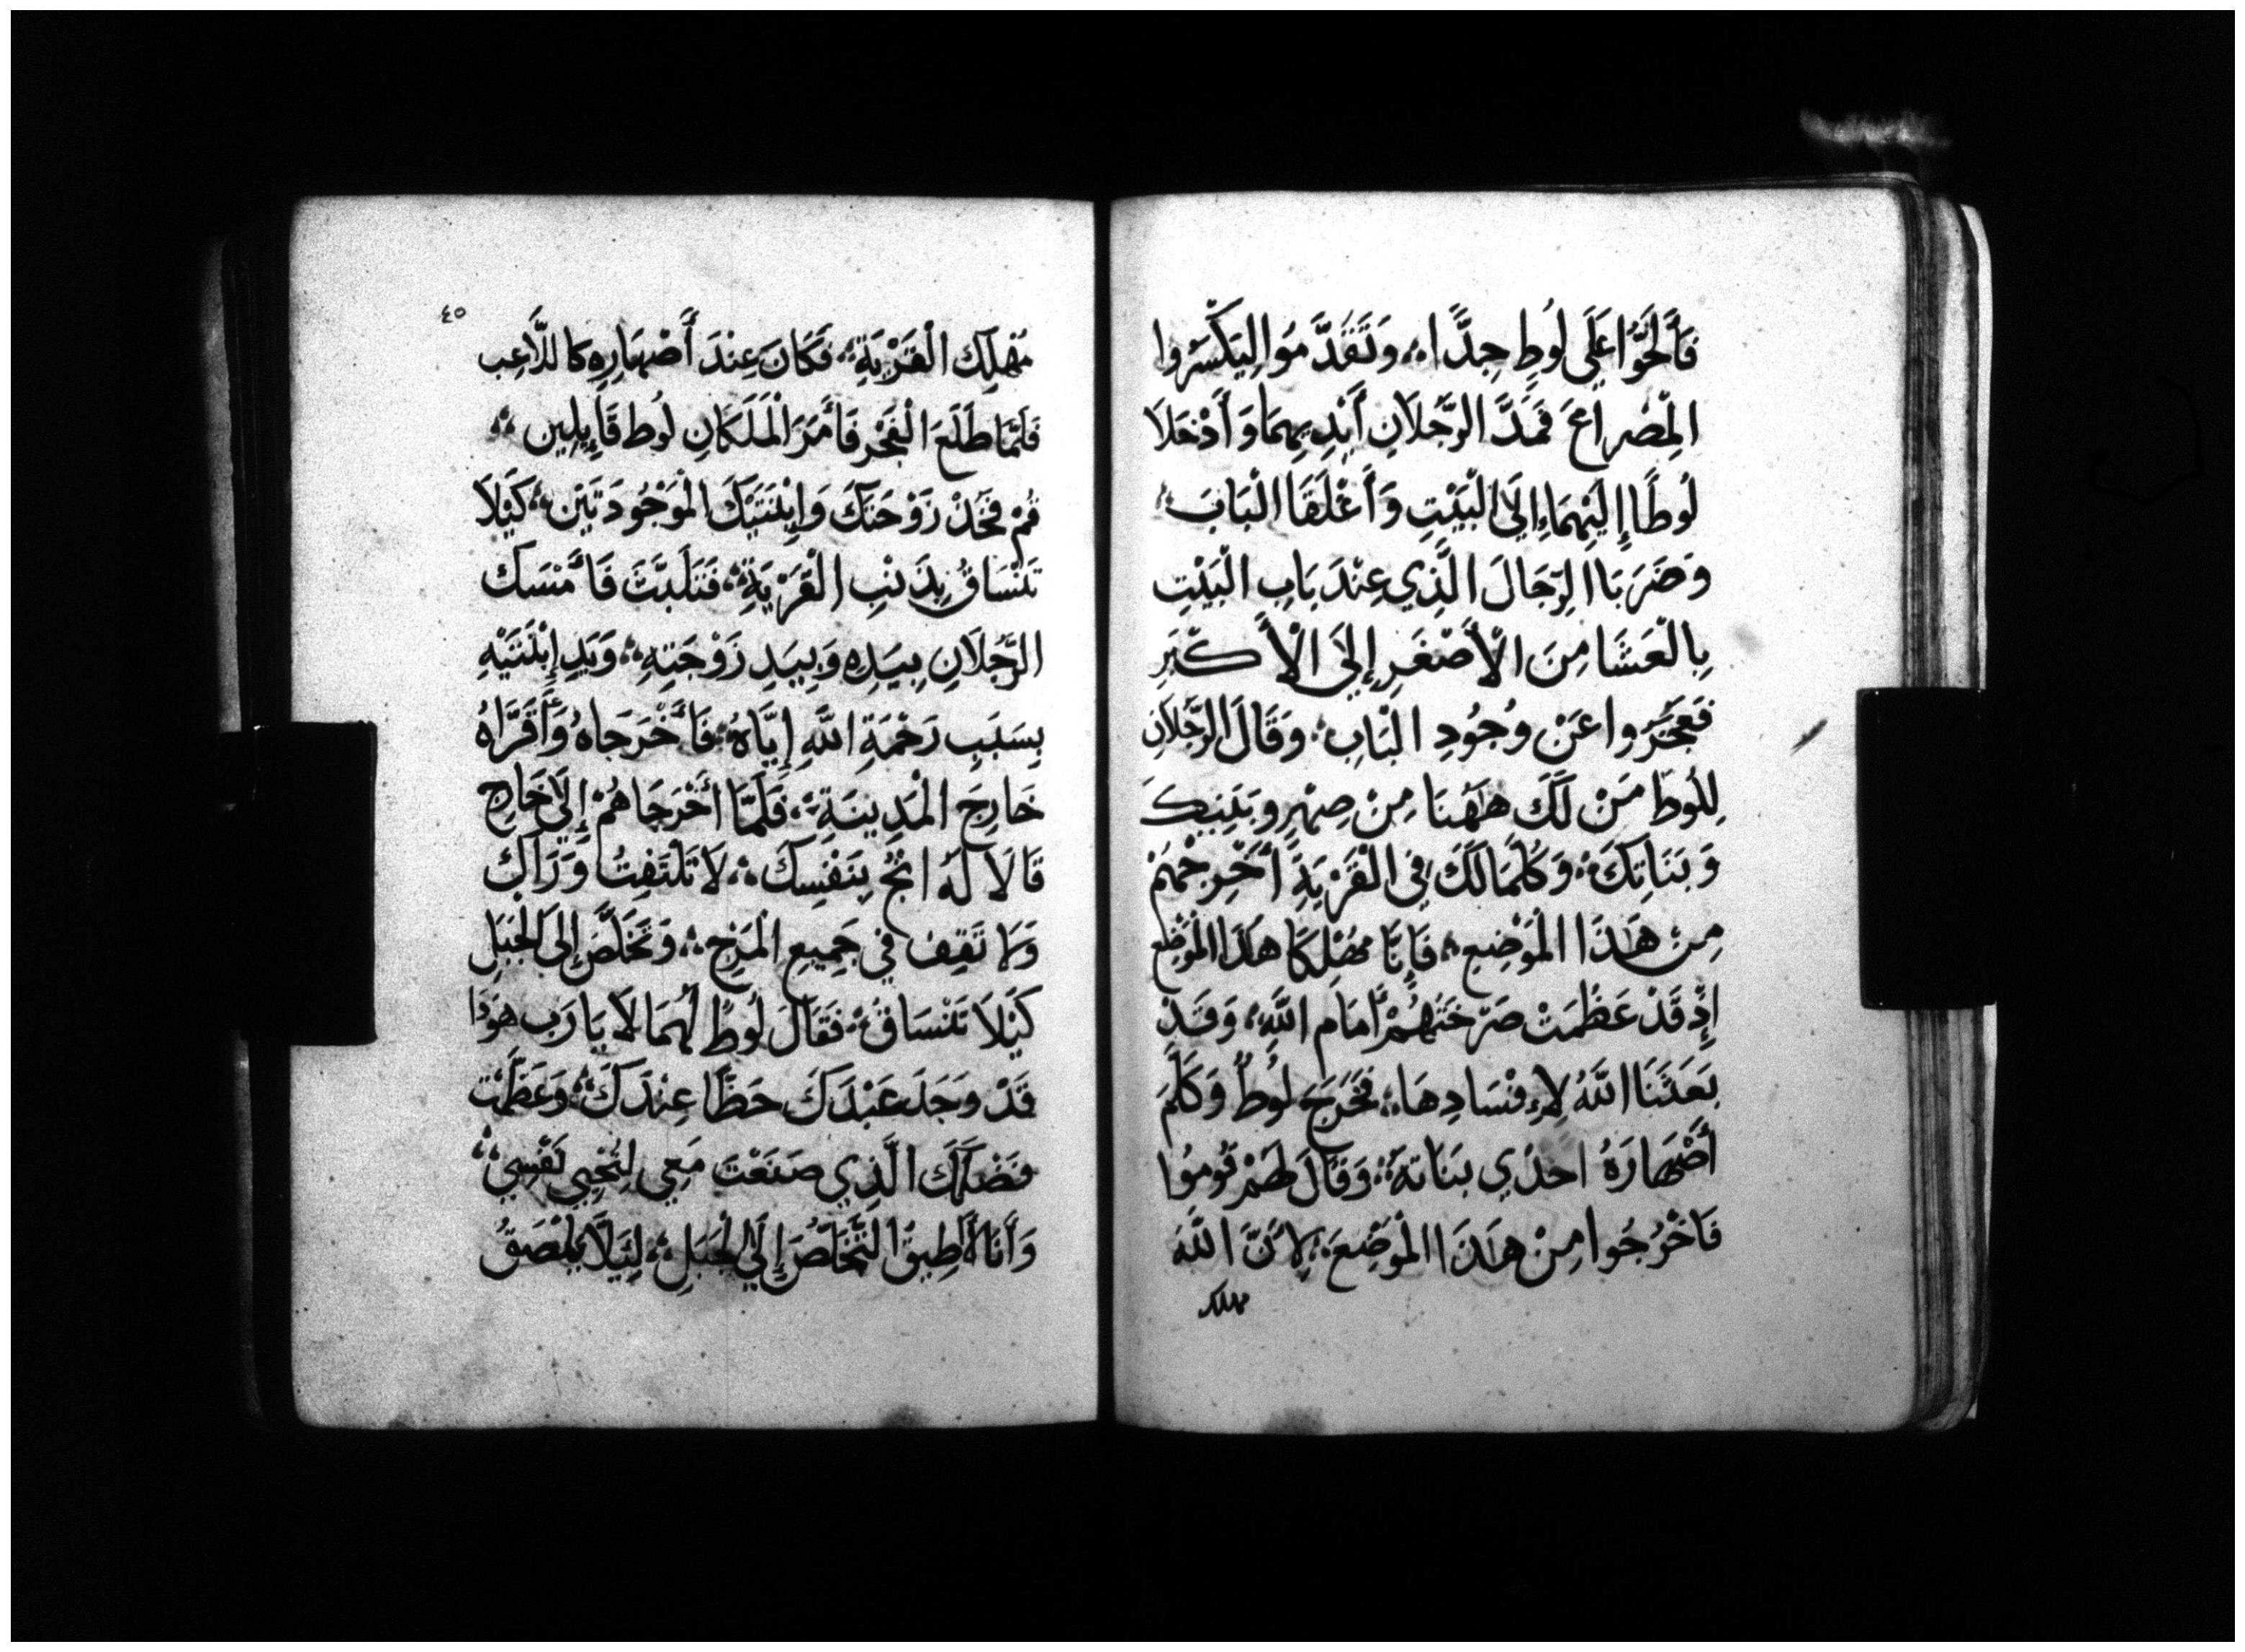 فَأَلَحُّوا عَلَى لُوطٍ جِدًّا ؞ وَتَقَدَّمُوا لِيَكْسَرُوا
الْمِصْرَاعَ فَمَدَّ الرَّجُلَانِ أَيْدِيهِمَا وَأَدْخَلَا
لُوطًا إِلَيْهِمَا إِلَى الْبَيْتِ وَأَغْلَقَا الْبَابَ ؞
وَضَرَبَا الرِّجَالَ الَّذِي عِنْدَ بَابِ الْبَيْتِ
بِالْعَشَا مِنَ الْأَصْغَرِ إِلَى الْأَكْبَرِ
فَعَجَزُوا عَنْ وُجُودِ الْبَابِ ؞ وَقَالَ الرَّجُلَانِ
لِلُوطٍ مَنْ لَكَ هَهُنَا مِنْ صِهْرٍ وَبَنِيكَ
وَبَنَاتِكَ ؞ وَكُلَّمَا لَكَ فِي الْقَرْيَةِ أَخْرِجْهُمْ
مِنْ هَذَا الْمَوْضِعِ ؞ فَإِنَّا مُهْلِكَا هَذَا الْمَوْضِعِ
إِذْ قَدْ عَظُمَتْ صَرْخَتُهُمْ أَمَامَ اللَّهِ ؞ وَقَدْ
بَعَثَنَا اللَّهُ لِإِفْسَادِهَا ؞ فَخَرَجَ لُوطٌ وَكَلَّمَ
أَصْهَارَهُ احدَي بَنَاتهِ ؞ وَقَالَ لَهُمْ قُومُوا
فَاخْرُجُوا مِنْ هَذَا الْمَوْضِعَ ؞ لِأَنَّ اللَّهَ
مهلك
٤٥
مُهْلِكَ الْقَرْيَةِ ؞ فَكَانَ عِنْدَ أَصْهَارِهِ كَاللَّاعِبِ
فَلَمَّا طَلَعَ الْفَجْرِ فَأَمَرَ الْمَلَكَانِ لُوط قَايِلِين ؞
قُمْ فَخُذْ زَوْجَتَكَ وَإِبْنَتَيْكَ الْمَوْجُودَتَيْن ؞ كَيْلَا
تَنْسَاقُ بِذَنْبِ الْقَرْيَةِ ؞ فَتَلَبَّثَ فَأَمْسَكَ
الرَّجُلَانِ بِيَدِهِ وَبِيَدِ زَوْجَتِهِ ؞ وَيَدِ إِبْنَتَيْهِ
بِسَبَبِ رَحْمَةِ اللَّهِ إِيَّاهُ ؞ فَأَخْرَجَاهُ وَأَقَرَّاهُ
خَارِجَ الْمَدِينَةِ ؞ فَلَمَّا أَخْرَجَاهُمْ إِلَى خَارِج
قَالَا لَهُ انْجُ بِنَفْسِكَ ؞ لَا تَلْتَفِتُ وَرَاكَ
وَلَا تَقِف فِي جَمِيعِ الْمَرْجِ ؞ وَتَخَلَّصَ إِلَى الْجَبَلِ
كَيْلَا تَنْسَاقُ ؞ فَقَالَ لُوطٌ لَهُمَا لَا يَا رَب هَوَذَا
قَدْ وَجَدَ عَبْدَكَ حَظًّا عِنْدَكَ ؞ وَعَظَّمْتَ
فَضْلَكَ الَّذِي صَنَعْتَ مَعِي لِتُحْيِي نَفْسِي ؞
وَأَنَا لَا أُطِيقُ التَّخَلُّصَ إِلَى الْجَبَلِ ؞ لِيَلَّا يَلْصَقُ